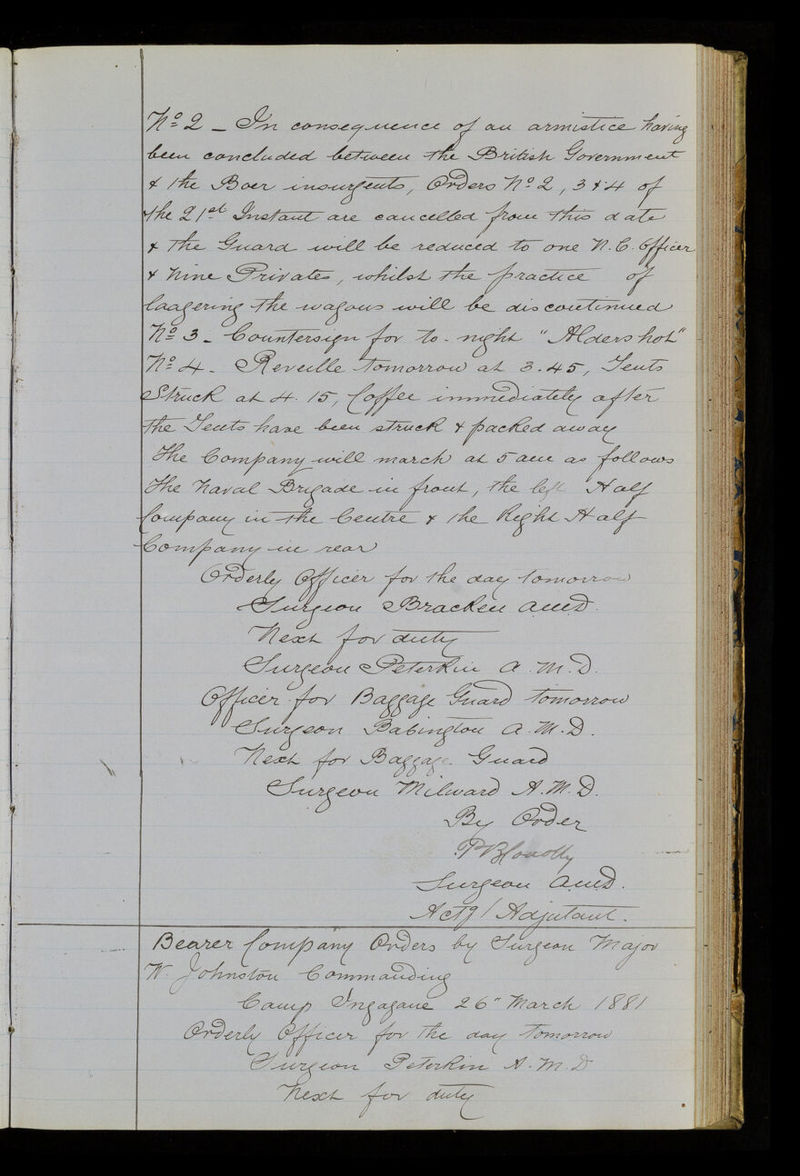 No 2 - In consequence of an armistice having
been concluded between the British Government
& the Boer insurgents, Orders No 2, 3 & 4 of
the 21st Instant are cancelled from this date
& the Guard will be reduced to one N.C. Officer
& Nine Privates, whilst the practice of
laagering the wagons will be discontinued
No 3 - Countersign for to-night "Aldershot"
No 4 - Reveille tomorrow at 3.45, Tents
Struck at 4.15, Coffee immediately after
the Tents have been struck & packed away
The Company will march at 5 am as follows
The Naval Brigade in front, the left Half
Company in the Centre & the Right Half
Company in rear
Orderly Officer for the day tomorrow
Surgeon Bracken AMD.
Next for duty
Surgeon Peterkin A.M.D.
Officer for Baggage Guard tomorrow
Surgeon Babington A.M.D.
Next for Baggage Guard
Surgeon Milward A.M.D.
By Order
PBConolly
Surgeon AMD.
Actg/Adjutant.
Bearer Company Orders by Surgeon Major
W. Johnston Commanding
Camp Ingagane 26" March 1881
Orderly Officer for the day tomorrow
Surgeon Peterkin A.M.D
Next for duty